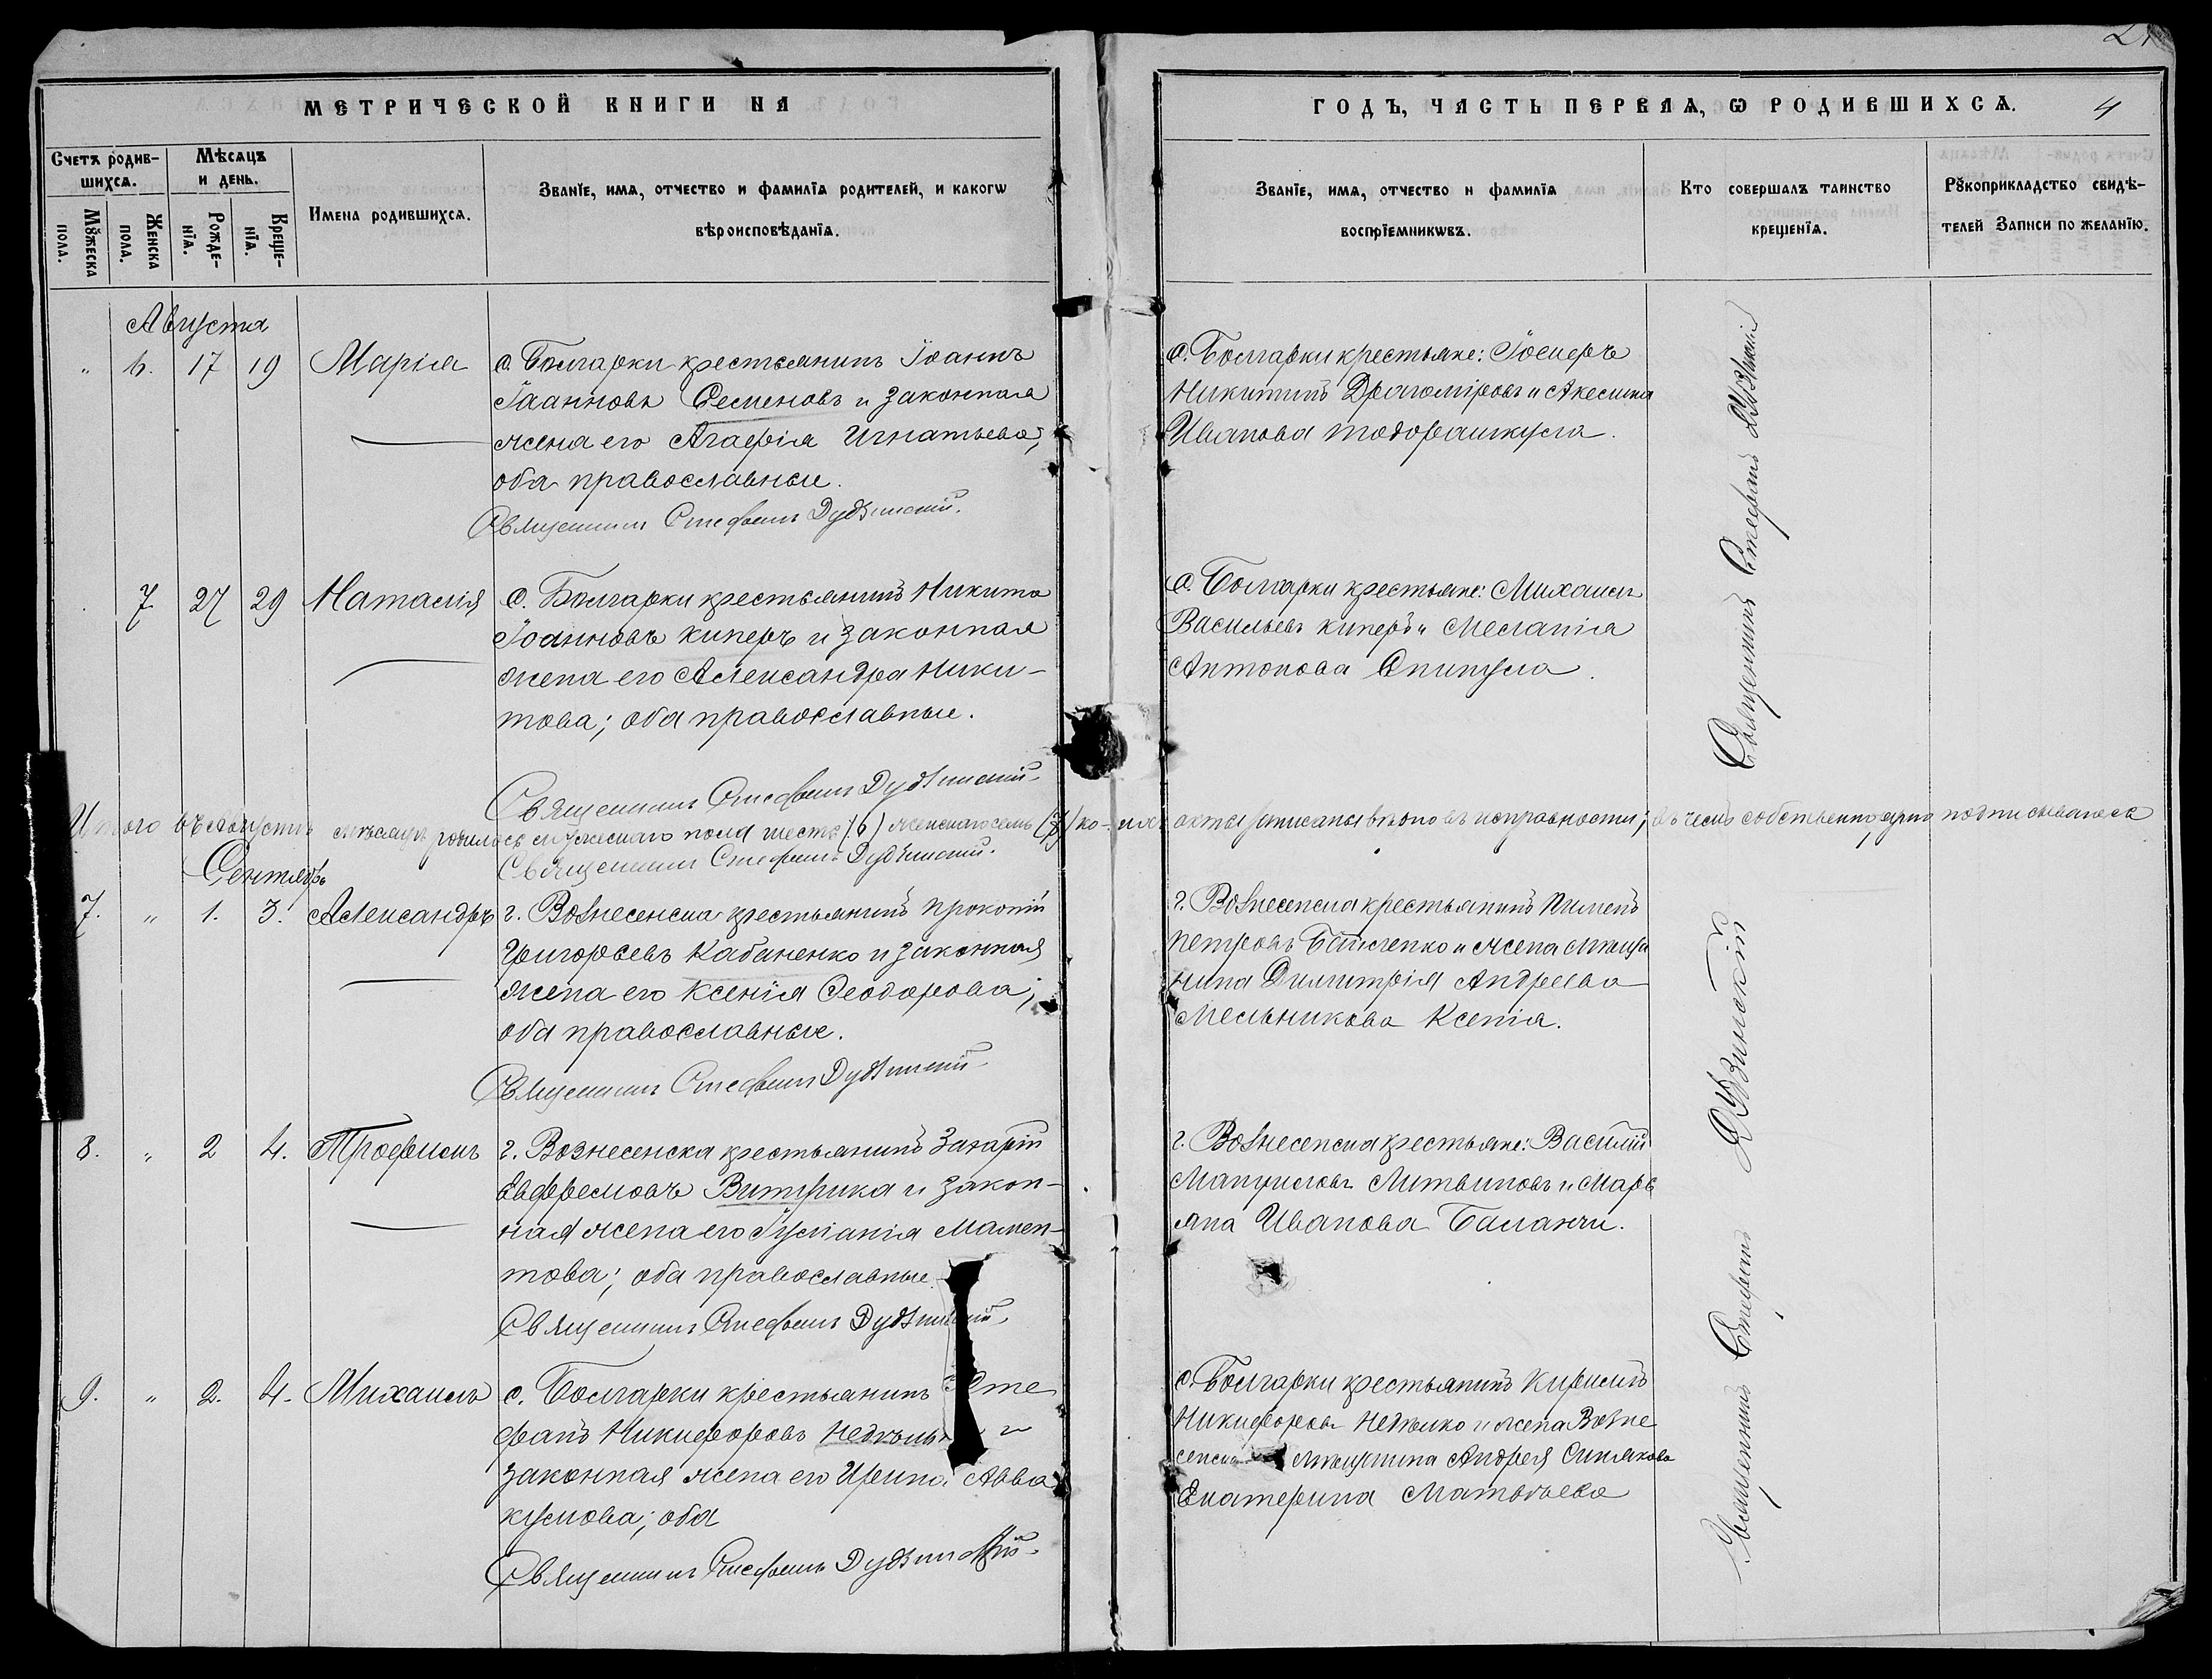 21
МЕТРИЧЕСКОЙ КНИГИ НА
ГОДЪ, ЧАСТЬ ПЕРВАЯ, Ѡ РОДИВШИХСѦ.
4
Счетъ родив-
шихсѧ.
Мѣсѧцъ
и день.
Мꙋжеска
пола.
Женска
пола.
Рожде-
нїѧ.
Креще-
нїѧ.
Имена родившихсѧ.
Званїе, имѧ, отчество и фамилїѧ родителей, и какогѡ
вѣроисповѣданїѧ.
Званїе, имѧ, отчество и фамилїѧ
воспрїемникѡвъ.
Кто совершалъ таинство
крещенїѧ.
Рꙋкоприкладство свидѣ-
телей Записи по желанїю.
Августа
" 6. 17 19 Марія
с. Болгарки крестьянинъ Іоаннъ
Іоанновъ Семеновъ и законная
жена его Агафія Игнатьева;
оба православные.
Священникъ Стефанъ Дудзинскій.
с. Болгарки крестьяне: Іосифъ
Никитинъ Драгоміровъ и Аксинія
Иванова
7 27 29 Наталія
с. Болгарки крестьянинъ Никита
Іоанновъ Киперъ и законная
жена его Александра Ники-
това; оба православные.
Священникъ Стефанъ Дудзинскій.
с. Болгарки крестьяне: Михаилъ
Васильевъ Киперъ и Меланія
Антонова
Священникъ Стефанъ Дудзинскій
Итого въ Августѣ мѣсяцѣ родилось мужескаго пола шесть (6) женскаго семь (7) ко- акты записаны въ исправности, въ чемъ собственноручно подписываюсь
Священникъ Стефанъ Дудзинскій.
Сентябрь
7. " 1. 3. Александръ
г. Вознесенска крестьянинъ Прокопій
Григорьевъ Кабаненко и законная
жена его Ксенія Ѳеодорова;
оба православные.
Священникъ Стефанъ Дудзинскій
г. Вознесенска крестьянинъ Пименъ
Петровъ и жена мѣща
нина Димитрія Андреева
Мельникова Ксенія.
8. " 2 4. Трофимъ
г. Вознесенска крестьянинъ Захарій
Евфремовъ Витрика и закон-
ная жена его Іуліанія Мамен-
това; оба православные.
Священникъ Стефанъ Дудзинскій.
г. Вознесенска крестьяне: Василій
Мануиловъ Литвиновъ и Марь
яна Иванова
9. " 2. 4. Михаилъ
с. Болгарки крестьянинъ Сте
фанъ Никифоровъ и
законная жена его Ирина Авва
кумова; оба
Священникъ Стефанъ Дудзинскій.
с. Болгарки крестьянинъ Кирилъ
Никифоровъ и жена Возне
сенска мѣщанина Андрея Синякова
Екатерина Матвѣева
Священникъ Стефанъ Дудзинскій